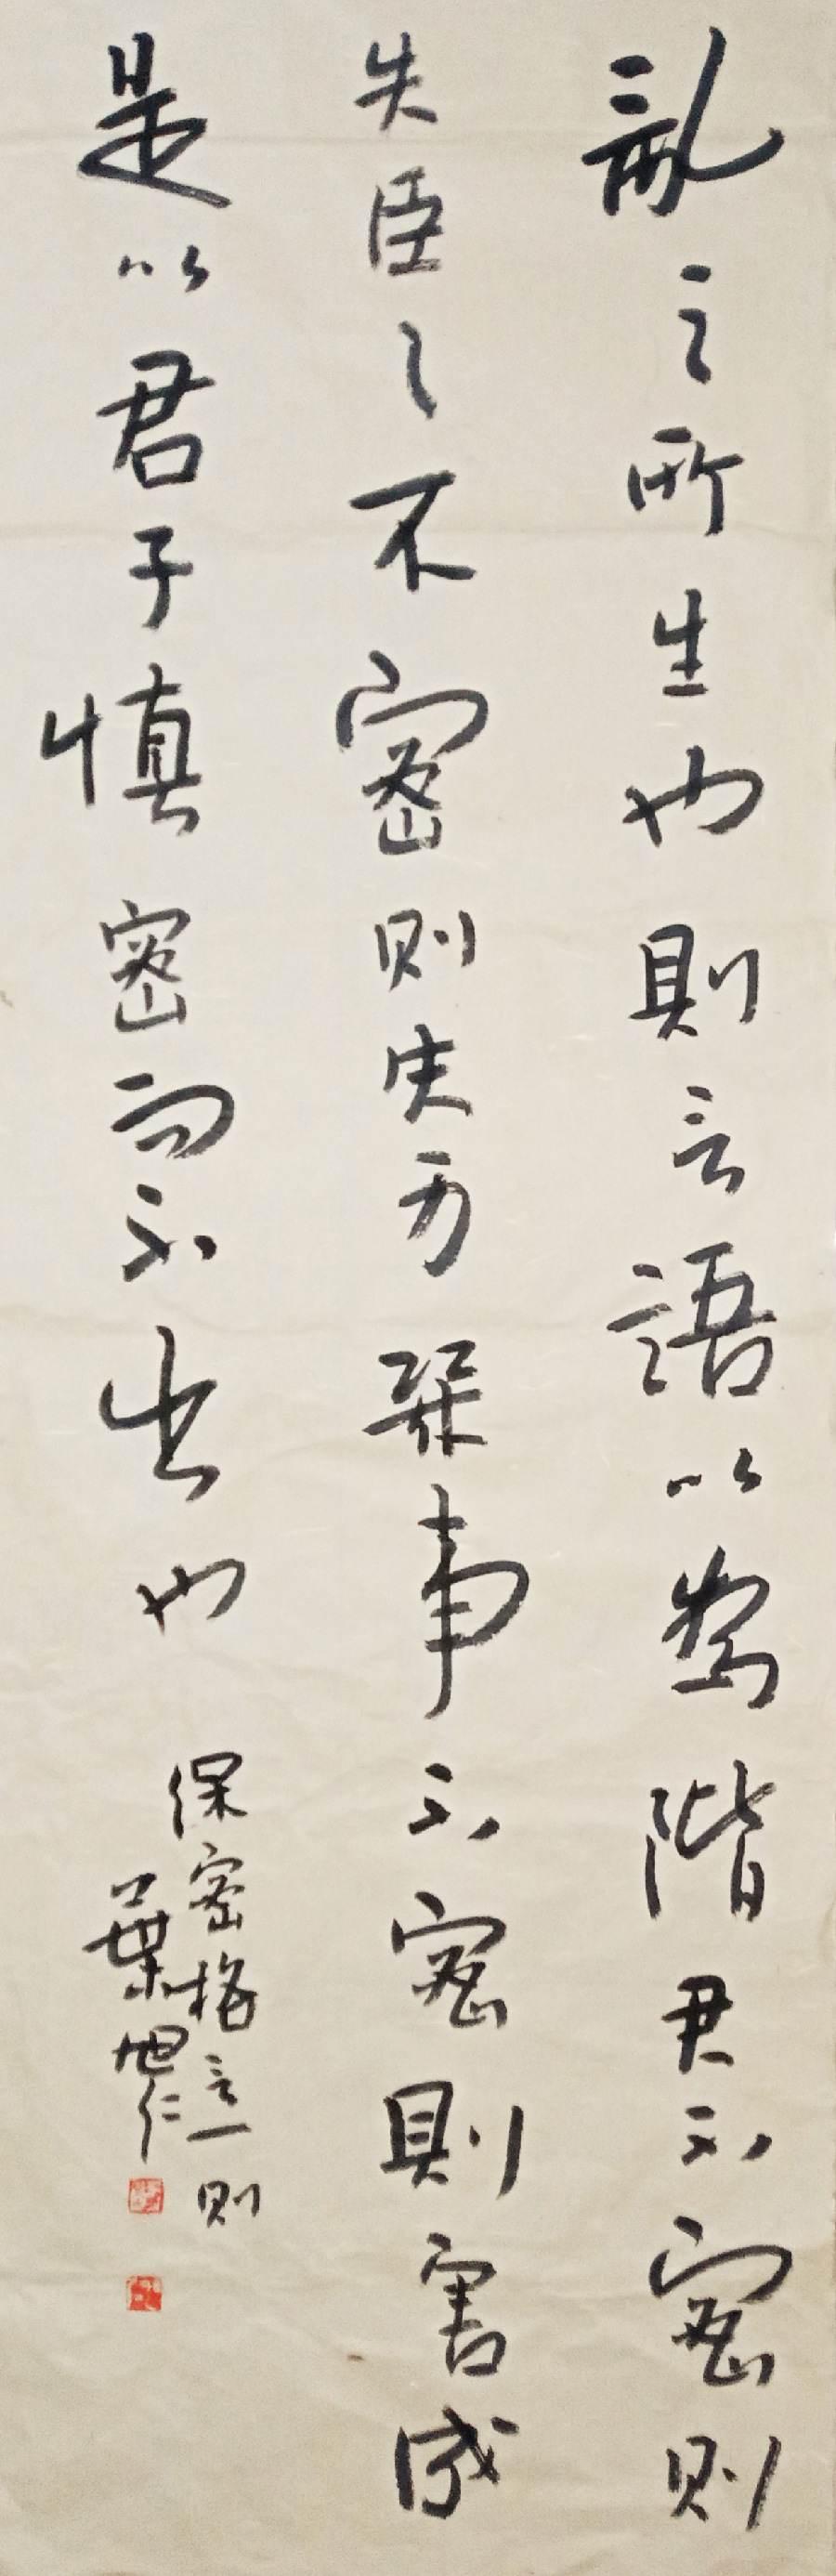 亂之所生也則言語以為階君不密則
失臣々不密則失身幾事不密則害成
是以君子慎密而不出也
保密格言一則
葉旭仁